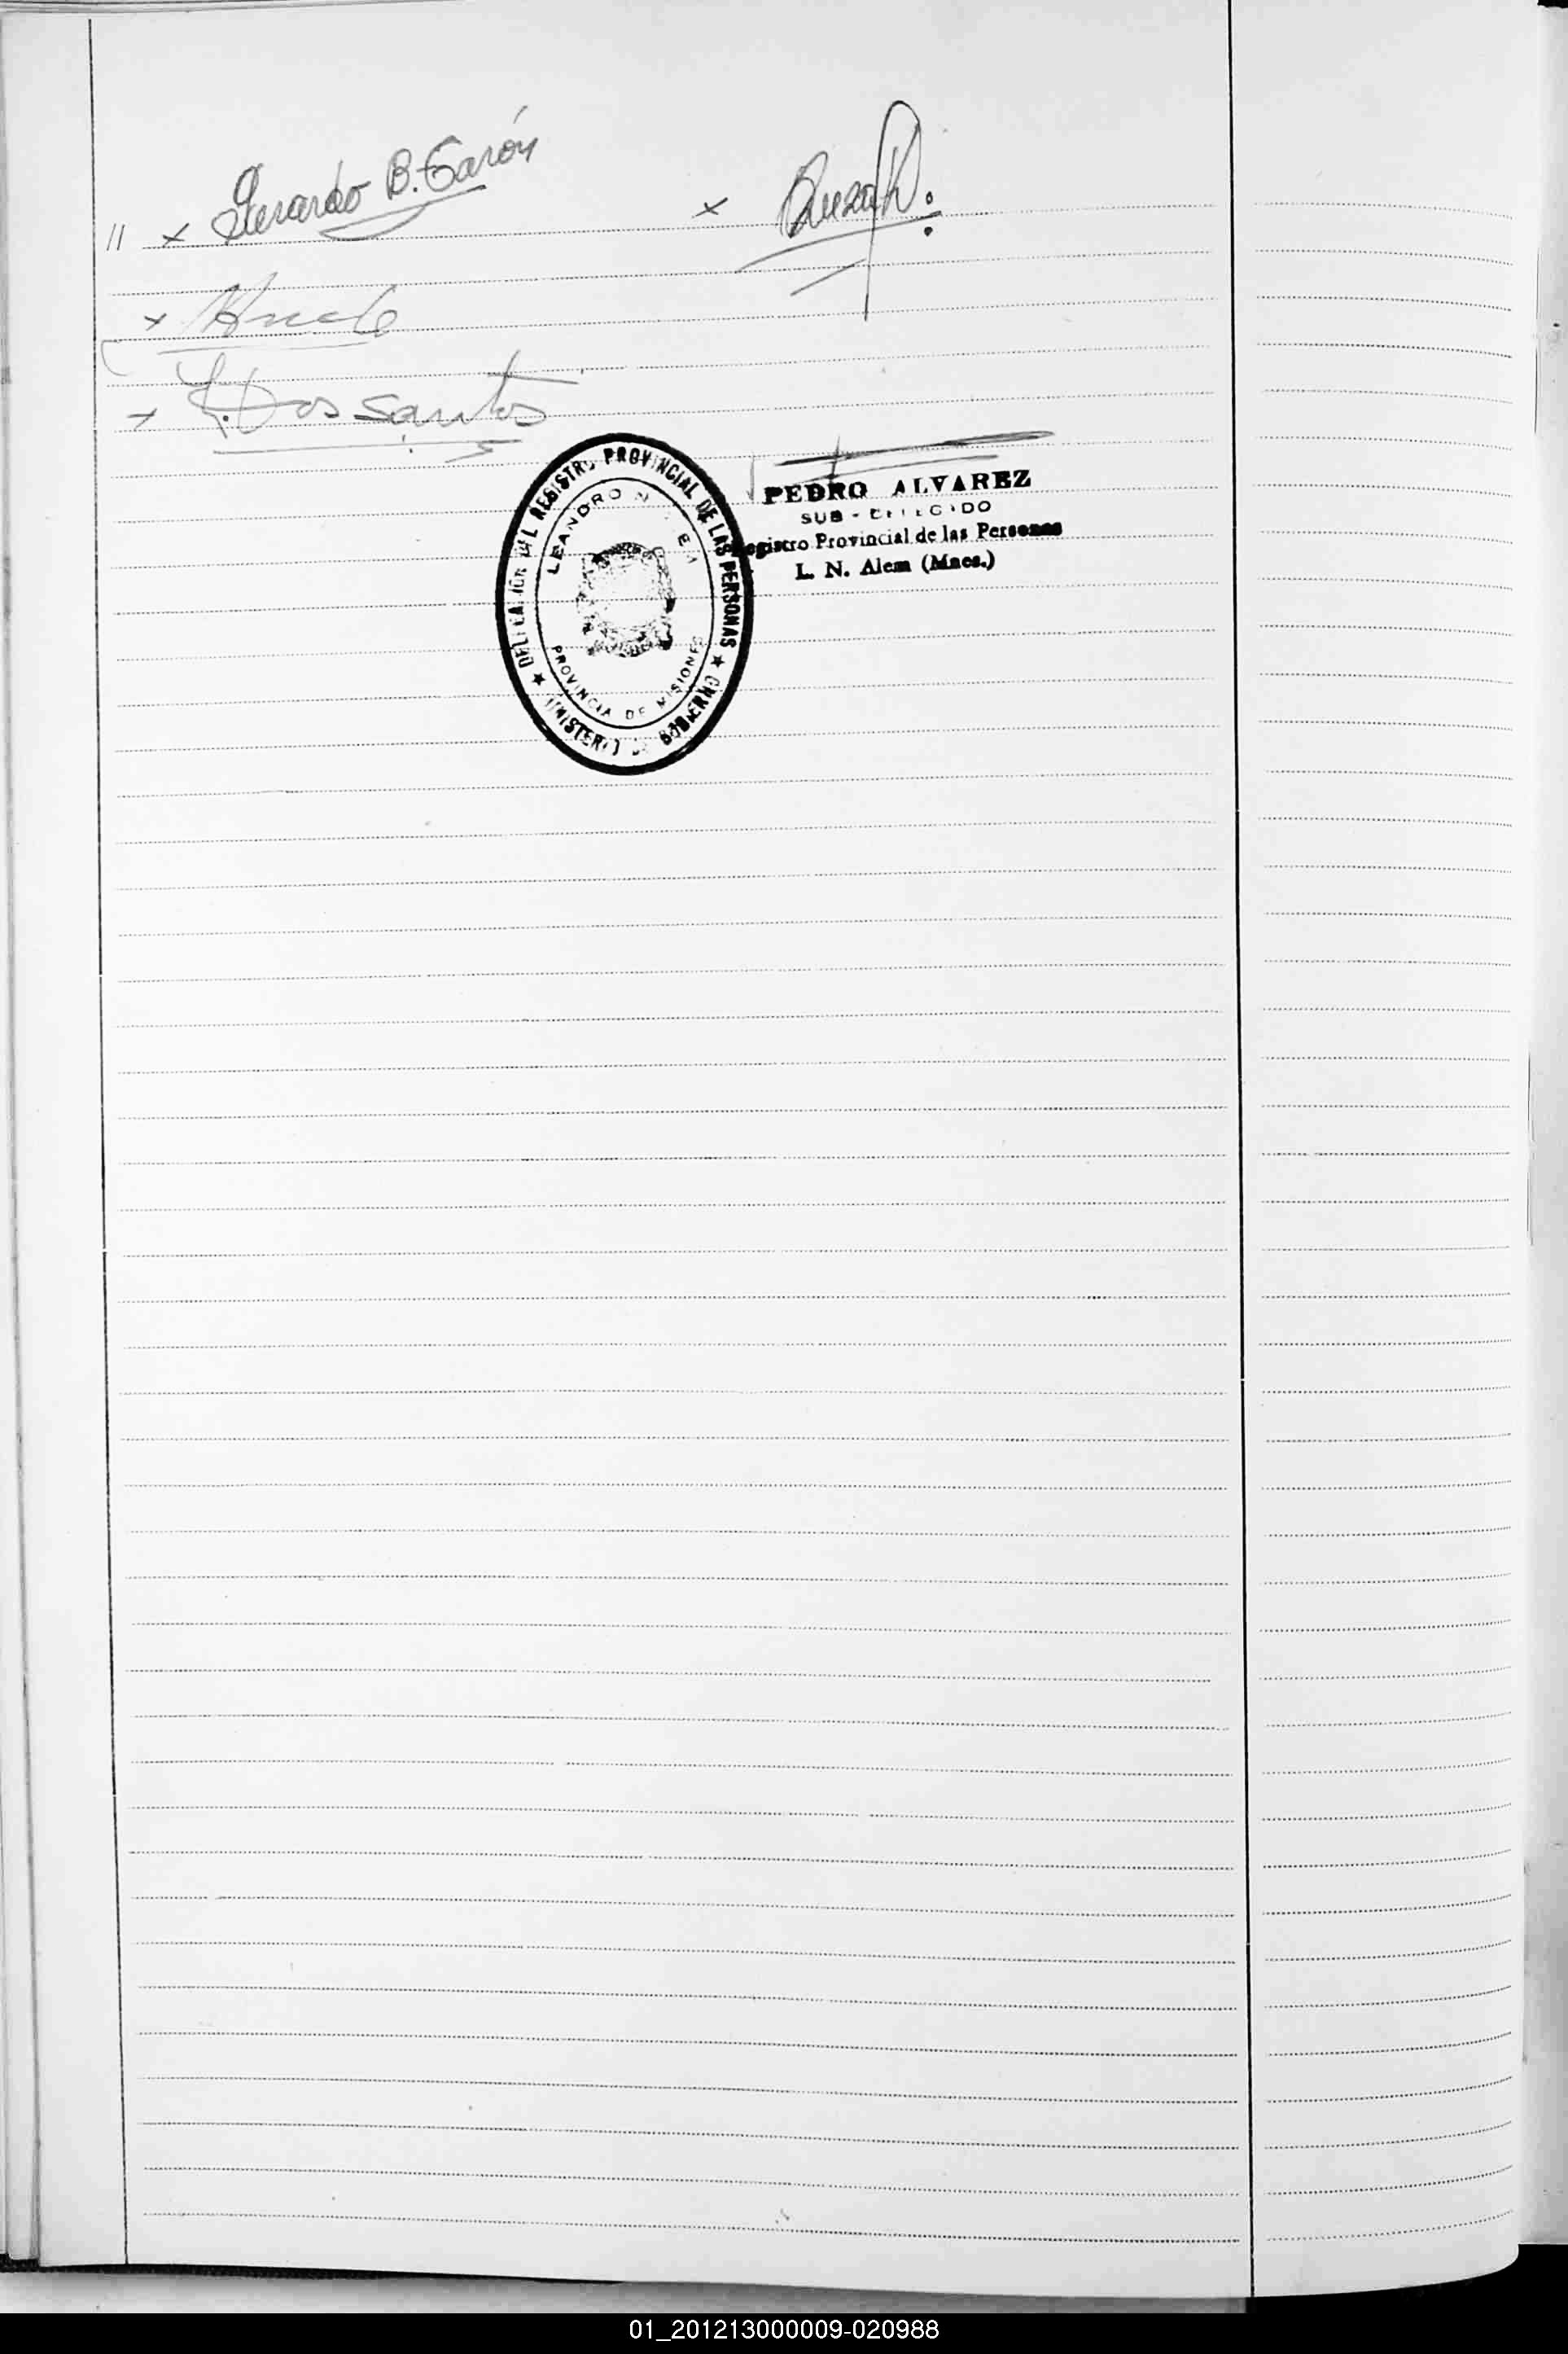 // x Gerardo B. Garón x
x
x Dos santos
DELEGACIÓN DEL REGISTRO PROVINCIAL DE LAS PERSONAS ★ MINISTERIO DE GOBIERNO ★
LEANDRO N. ALEM
PROVINCIA DE MISIONES
PEDRO ALVAREZ
SUB - DELEGADO
Registro Provincial de las Personas
L. N. Alem (Mnes.)
01_201213000009-020988